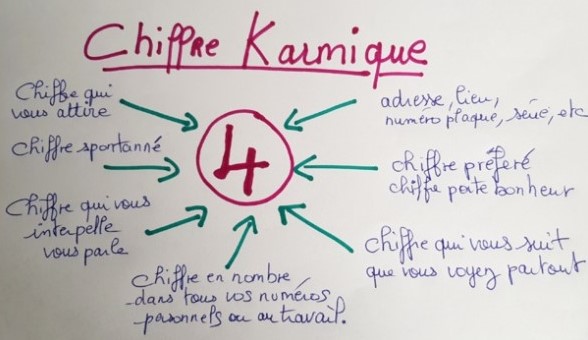 Chiffre Karmique
Chiffre qui
vous attire
chiffre spontanné
Chiffre qui vous
interpelle
vous parle
4
adresse, lieu,
numéro plaque, série, etc
chiffre préféré
chiffre porte bonheur
chiffre qui vous suit
que vous voyez partout
chiffre en nombre
dans tous vos numéros
personnels ou au travail.